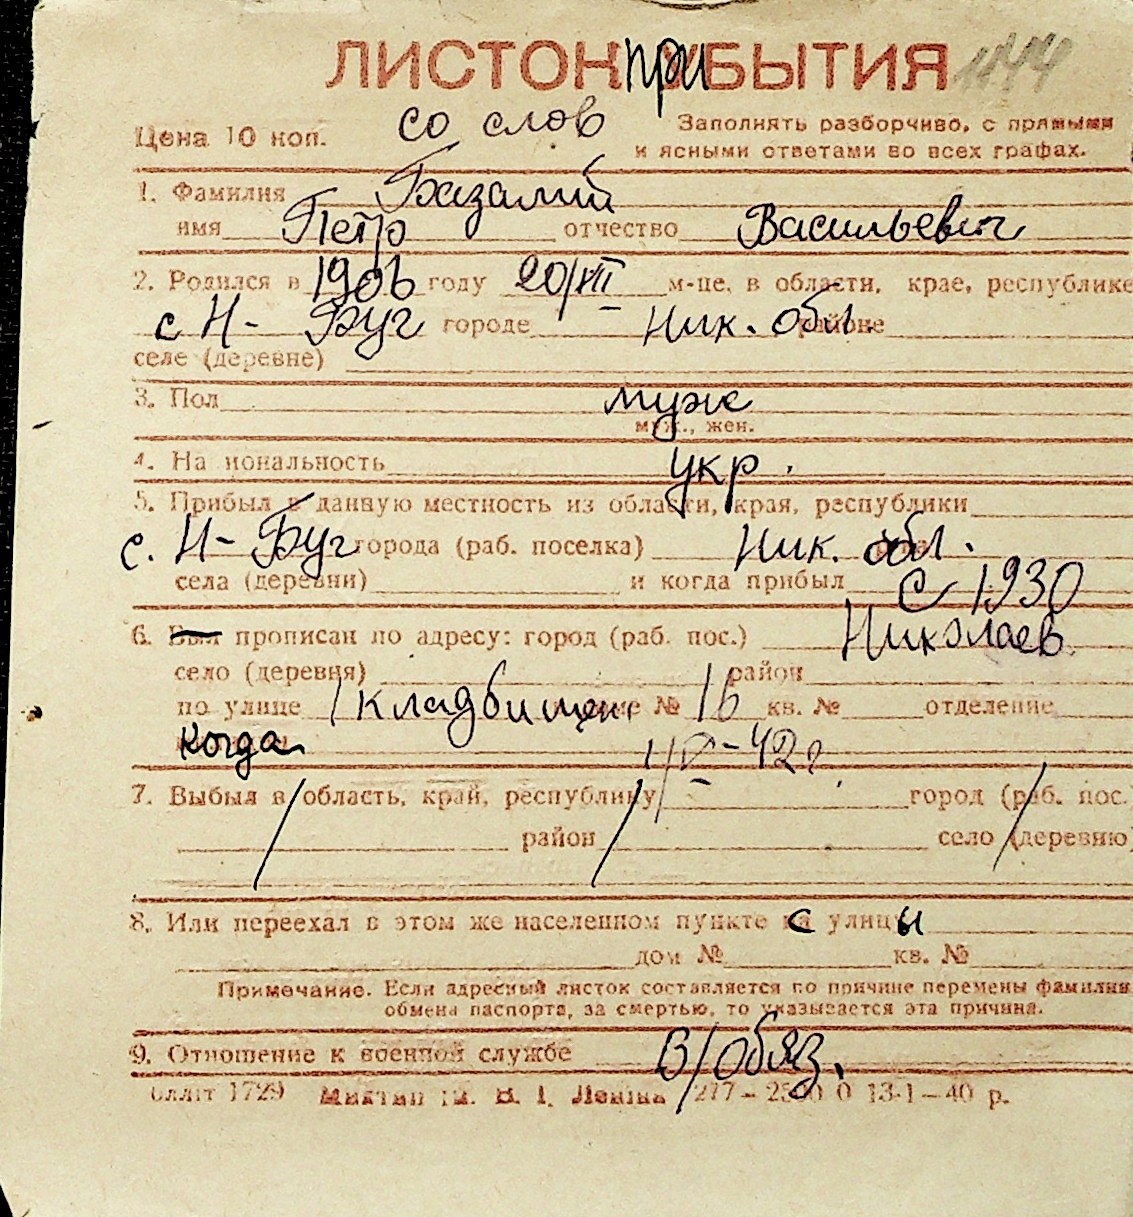 ЛИСТОК при УБЫТИЯ
Цена 10 коп. со слов Заполнять разборчиво, с прямыми
и ясными ответами во всех графах.
1. Фамилия Базалий
имя Петр отчество Васильевич
2. Родился в 1906 году 20/VII м-це, в области, крае, республике
с Н-Буг городе Ник. обл. районе
селе (деревне)
3. Пол муж
муж., жен.
4. Национальность укр.
5. Прибыл в данную местность из области, края, республики
с. Н-Буг города (раб. поселка) Ник. обл.
села (деревни) и когда прибыл с 1930
6. Был прописан по адресу: город (раб. пос.) Николаев
село (деревня) район
по улице 1 кладбищен № 16 кв. № отделение
когда 1/IV-42г.
7. Выбыл в область, край, республику город (раб. пос.)
район село (деревню)
8. Или переехал в этом же населенном пункте с улицы
дом № кв. №
Примечание. Если адресный листок составляется по причине перемены фамилии
обмена паспорта, за смертью, то указывается эта причина.
9. Отношение к военной службе в/обяз.
1729 ім. В. І. Леніна 277- 13-1-40 р.